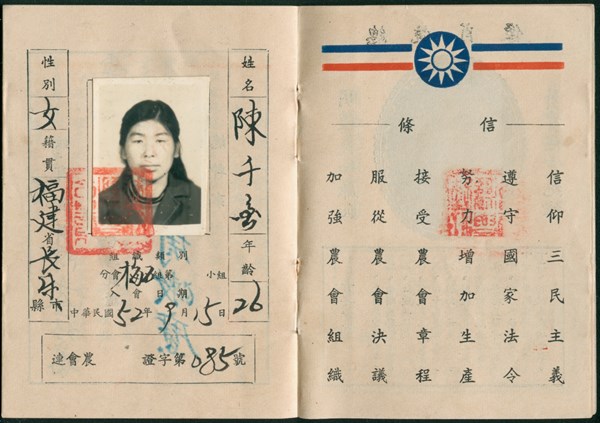 姓名 陳千
年齡 26
組織組別
分會 梅 組第 小組
入會日期
中華民國52年9月15日
性別 女
籍貫 福建省長樂縣市
連會農 證字第085號
信條
信仰三民主義
遵守國家法令
努力增加生產
接受農會章程
服從農會決議
加強農會組織